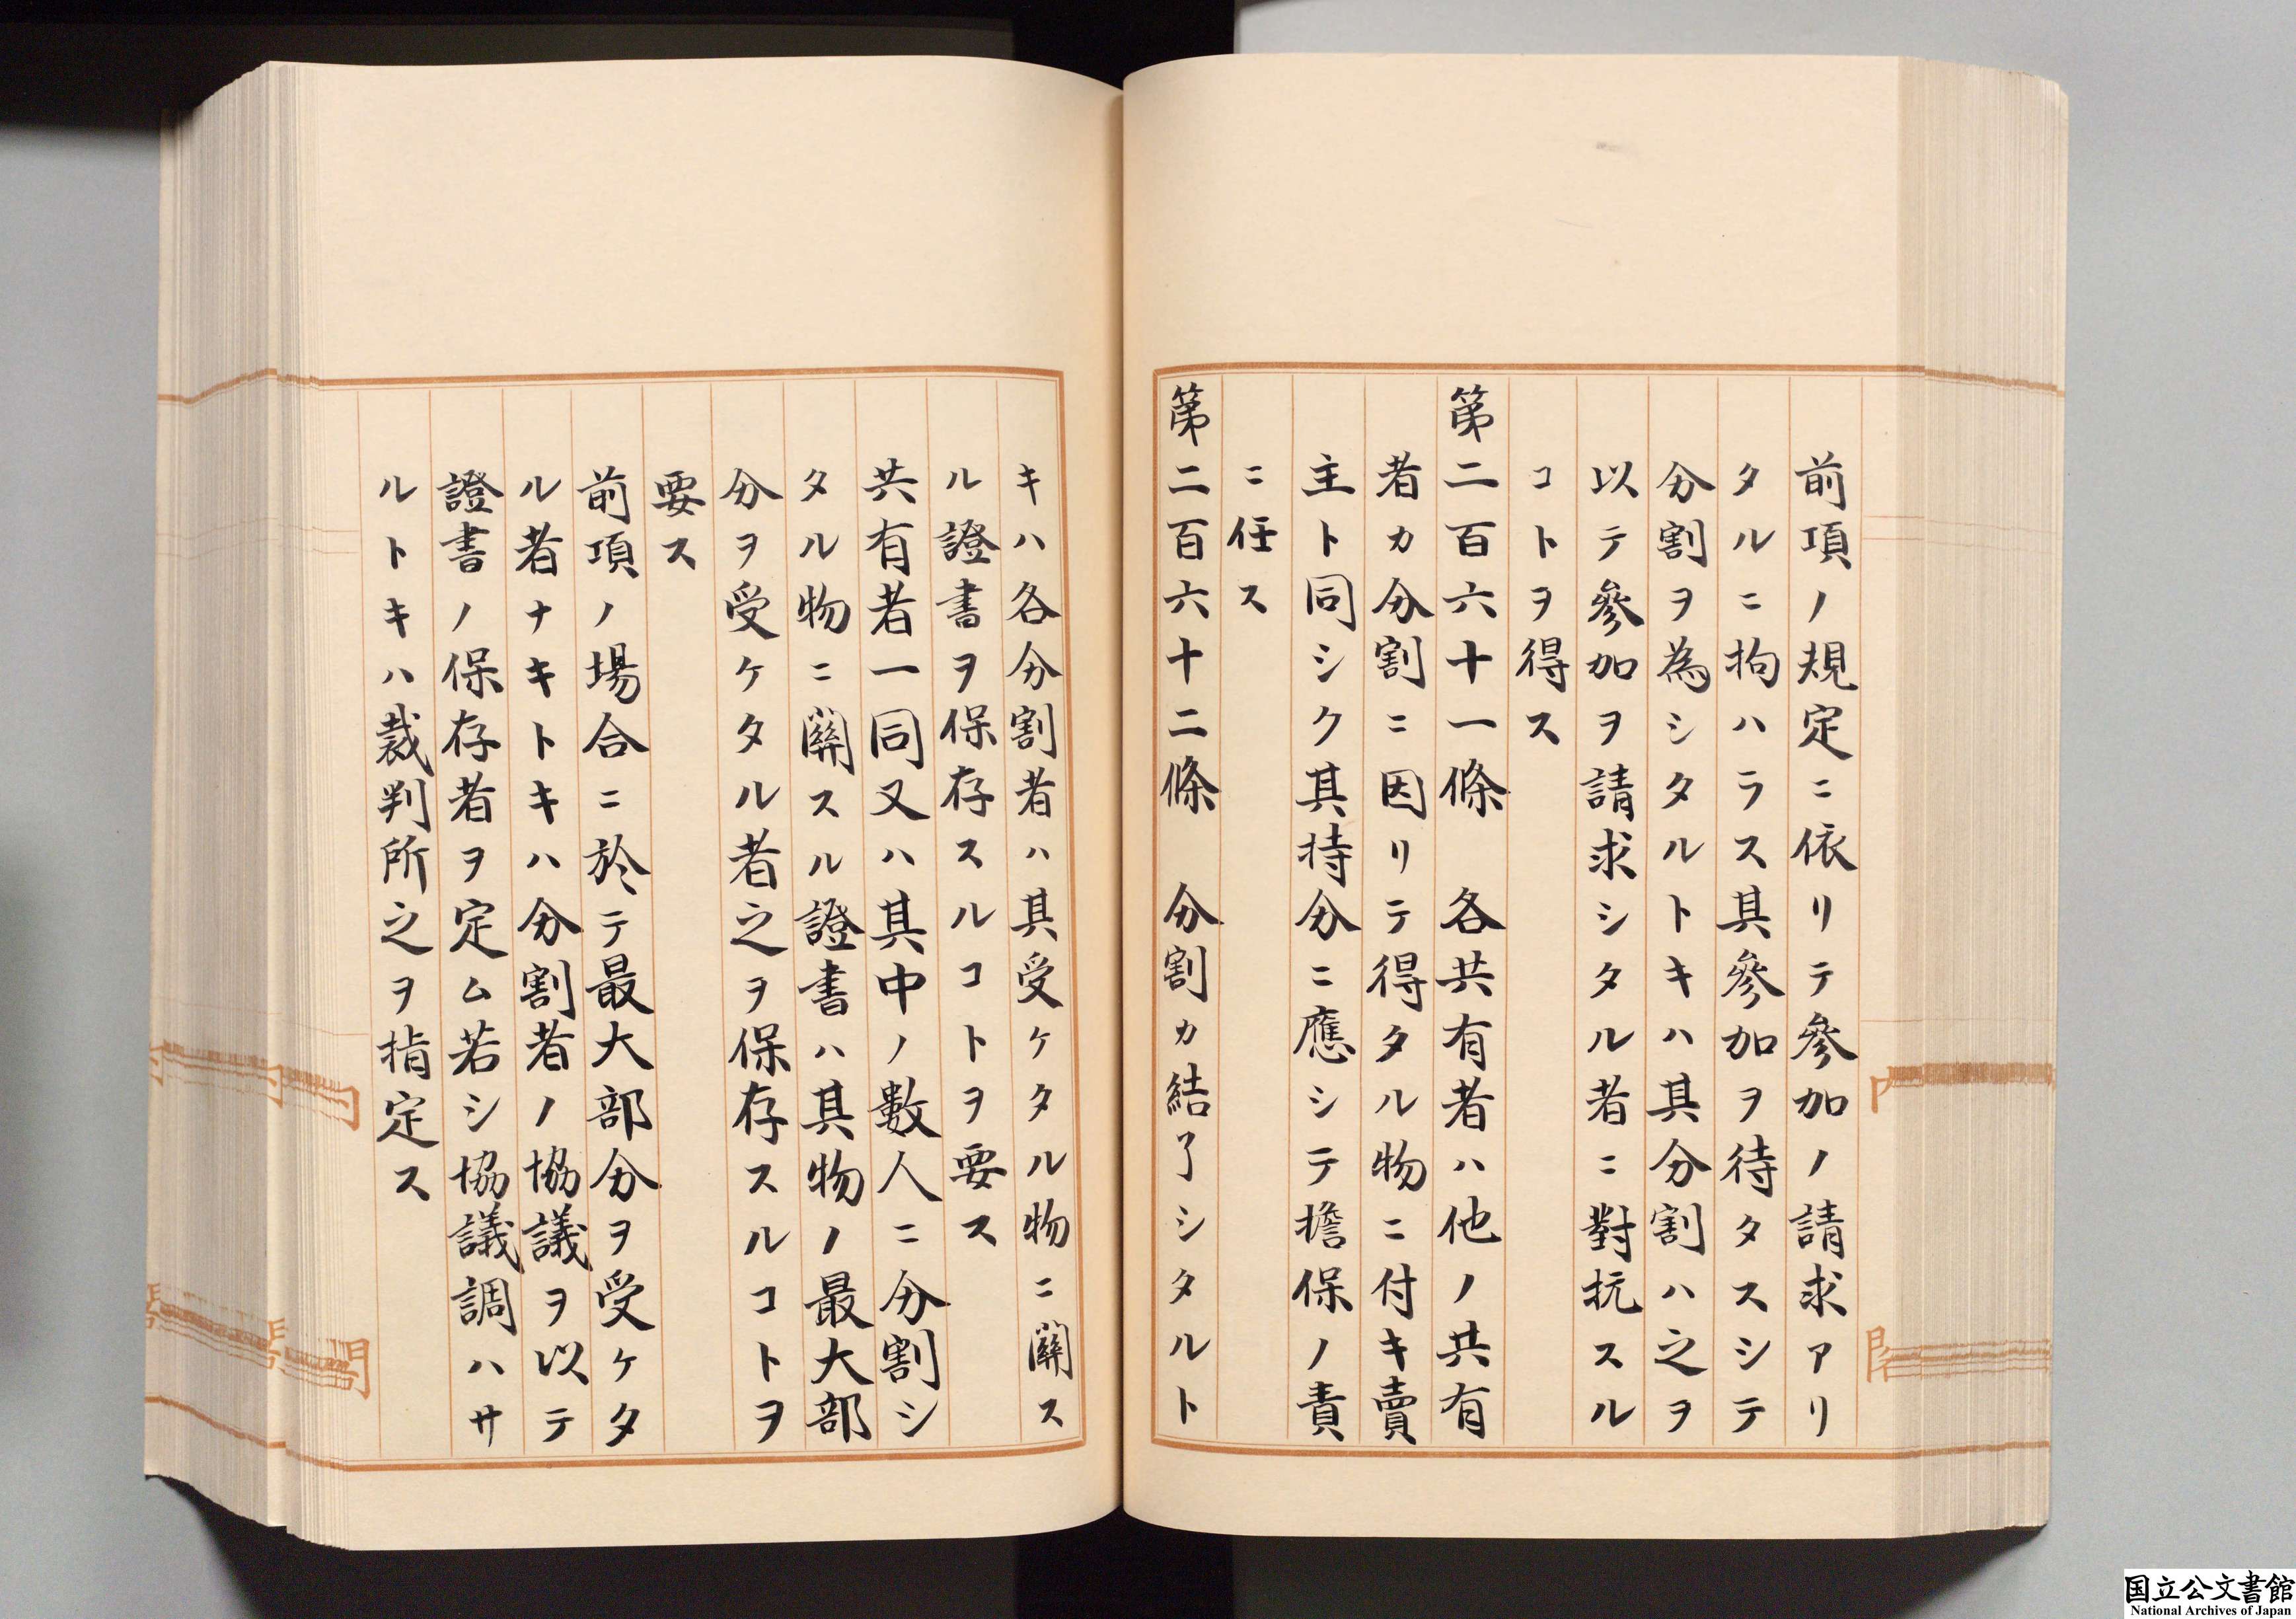 前項ノ規定ニ依リテ參加ノ請求アリ
タルニ拘ハラス其參加ヲ待タスシテ
分割ヲ為シタルトキハ其分割ハ之ヲ
以テ參加ヲ請求シタル者ニ對抗スル
コトヲ得ス
第二百六十一條　各共有者ハ他ノ共有
者カ分割ニ因リテ得タル物ニ付キ賣
主ト同シク其持分ニ應シテ擔保ノ責
ニ任ス
第二百六十二條　分割カ結了シタルト
キハ各分割者ハ其受ケタル物ニ關ス
ル證書ヲ保存スルコトヲ要ス
共有者一同又ハ其中ノ數人ニ分割シ
タル物ニ關スル證書ハ其物ノ最大部
分ヲ受ケタル者之ヲ保存スルコトヲ
要ス
前項ノ場合ニ於テ最大部分ヲ受ケタ
ル者ナキトキハ分割者ノ協議ヲ以テ
證書ノ保存者ヲ定ム若シ協議調ハサ
ルトキハ裁判所之ヲ指定ス
国立公文書館
National Archives of Japan